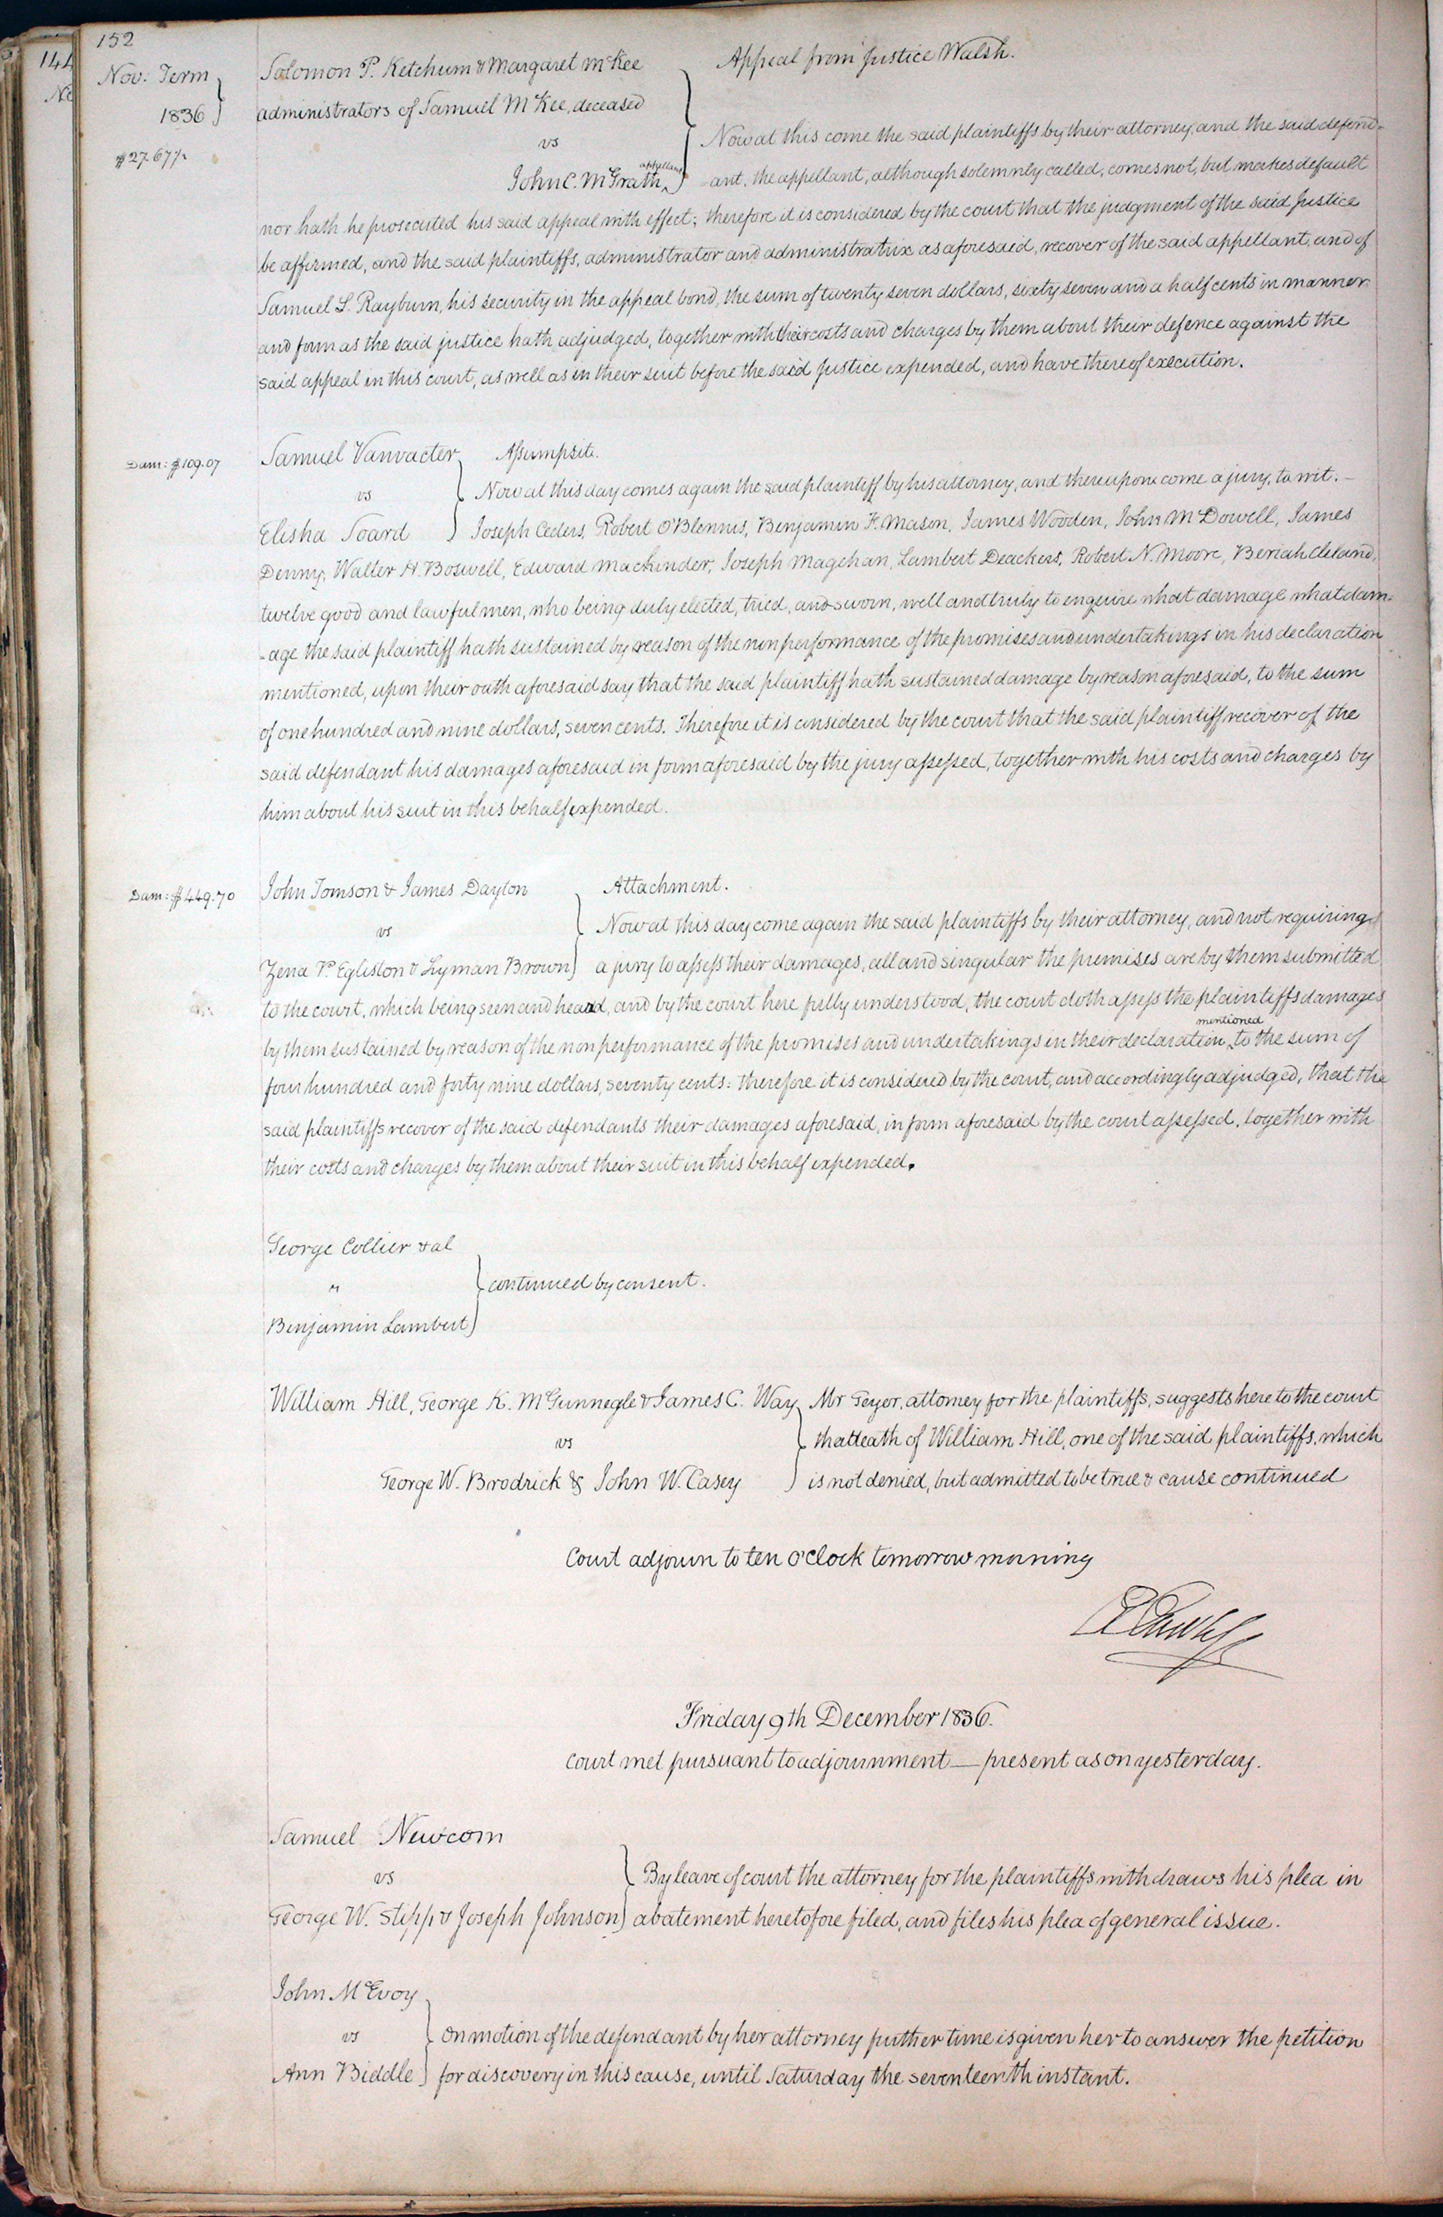 152
144
No
Nov: Term
1836
$27.67½
Solomon P. Ketchum & Margaret McKee
administrators of Samuel McKee, deceased
vs
appellant
John C. McGrath
Appeal from Justice Walsh.
Now at this come the said plaintiffs by their attorney, and the said defend-
-ant, the appellant, although solemnly called, comes not, but makes default
nor hath he prosecuted his said appeal with effect; therefore it is considered by the court that the judgment of the said Justice
be affirmed, and the said plaintiffs, administrator and administratrix as aforesaid, recover of the said appellant, and of
Samuel S. Rayburn, his security in the appeal bond, the sum of twenty seven dollars, sixty seven and a half cents in manner
and form as the said justice hath adjudged, together with their costs and charges by them about their defence against the
said appeal in this court, as well as in their suit before the said Justice expended, and have thereof execution.
Dam: $109.07
Samuel Vanvacter
vs
Elisha Soard
Assumpsit.
Now at this day comes again the said plaintiff by his attorney, and thereupon come a jury, to wit. –
Joseph Ceders, Robert O'Blennis, Benjamin F. Mason, James Wooden, John McDowell, James
Denny, Walter H. Boswell, Edward Mackinder, Joseph Magehan, Lambert Deackers, Robert N. Moore, Beriah Cleland,
twelve good and lawful men, who being duly elected, tried, and sworn, well and truly to enquire what damage what dam-
-age the said plaintiff hath sustained by reason of the nonperformance of the promises and undertakings in his declaration
mentioned, upon their oath aforesaid say that the said plaintiff hath sustained damage by reason aforesaid, to the sum
of one hundred and nine dollars, seven cents. Therefore it is considered by the court that the said plaintiff recover of the
said defendant his damages aforesaid in form aforesaid by the jury assessed, together with his costs and charges by
him about his suit in this behalf expended.
Dam: $449.70
John Tomson & James Dayton
vs
Zena P. Egliston & Lyman Brown
Attachment.
Now at this day come again the said plaintiffs by their attorney, and not requiring
a jury to assess their damages, all and singular the premises are by them submitted
to the court, which being seen and heard, and by the court here fully understood, the court doth assess the plaintiffs damages
mentioned
by them sustained by reason of the nonperformance of the promises and undertakings in their declaration to the sum of
four hundred and forty nine dollars, seventy cents: therefore it is considered by the court, and accordingly adjudged, that the
said plaintiffs recover of the said defendants their damages aforesaid, in form aforesaid by the court assessed, together with
their costs and charges by them about their suit in this behalf expended.
George Collier & al
"
Benjamin Lambert
continued by consent.
William Hill, George K. McGunnegle & James C. Way
vs
George W. Brodrick & John W. Casey
Mr Geyer, attorney for the plaintiffs, suggests here to the court
the death of William Hill, one of the said plaintiffs, which
is not denied, but admitted to be true & cause continued
Court adjourn to ten o'Clock tomorrow morning
Friday 9th December 1836.
Court met pursuant to adjournment — present as on yesterday.
Samuel Newcom
vs
George W. Stipp & Joseph Johnson
By leave of court the attorney for the plaintiffs withdraws his plea in
abatement heretofore filed, and files his plea of general issue.
John McEvoy
vs
Ann Biddle
On motion of the defendant by her attorney further time is given her to answer the petition
for discovery in this cause, until Saturday the seventeenth instant.